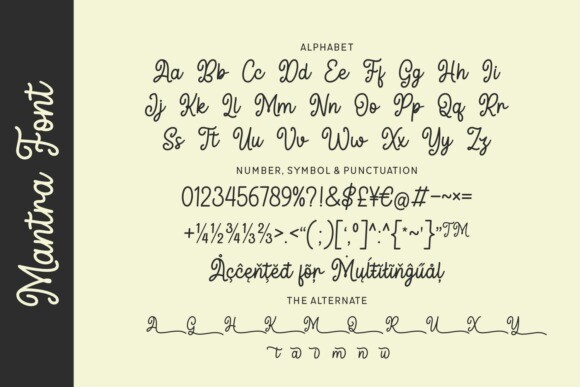 Mantra Font
ALPHABET
Aa Bb Cc Dd Ee Ff Gg Hh Ii
Jj Kk Ll Mm Nn Oo Pp Qq Rr
Ss Tt Uu Vv Ww Xx Yy Zz
NUMBER, SYMBOL & PUNCTUATION
0123456789%?!&$£¥€@#-~×=
+¼½¾⅓⅔>.<“(;)[‘,⁰]^:^{*~'}”™
THE ALTERNATE
A G H K M Q R U X Y